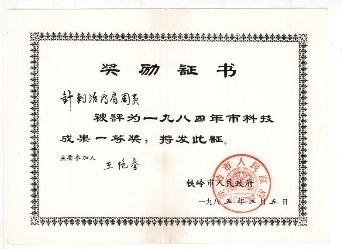 奖励证书
针刺治疗肩周炎
被评为一九八四年市科技
成果一等奖，特发此证。
主要参加人
王艳
铁岭市人民政府
一九八五年 月五日